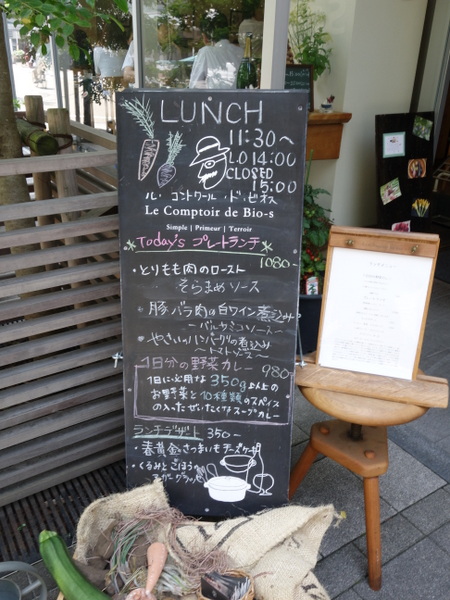 LUNCH
11:30～
L.O 14:00
CLOSED
15:00
ル・コントワール・ド・ビオス
Le Comptoir de Bio-s
Simple | Primeur | Terroir
Today's プレートランチ
1080-
・とりもも肉のロースト
そらまめソース
・豚バラ肉の白ワイン煮込み
～バルサミコソース～
・やさいのハンバーグの煮込み
～トマトソース～
1日分の野菜カレー 980-
1日に必要な350g以上の
お野菜と10種類のスパイス
の入ったぜいたくなスープカレー
ランチデザート 350-
・春黄金さつまいもチーズケーキ
・くるみとごぼうの